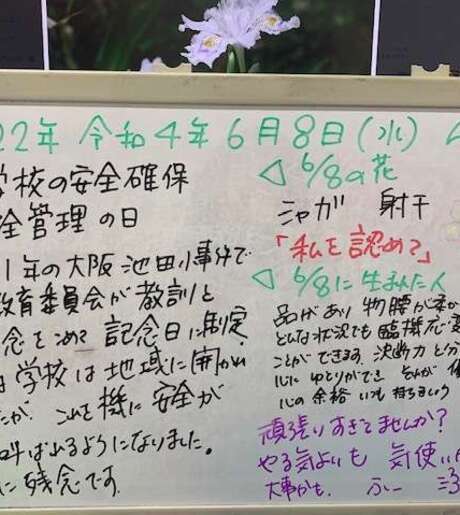 22年 令和4年 6月8日(水)
学校の安全確保
全管理の日
1年の大阪 池田小事件で
教育委員会が教訓と
念をこめて 記念日に制定
は学校は地域に開かれ
たが、これを機に安全が
叫ばれるようになりました。
に残念です。
◁ 6/8の花
シャガ 射干
「私を認めて」
◁ 6/8に生まれた人
品があり 物腰が柔か
どんな状況でも 臨機応変
ことができます。決断力と分
心に ゆとりができ
心の余裕 いつも 持ちましょう
頑張りすぎてませんか?
やる気よいも 気使い
大事かも。 ふー